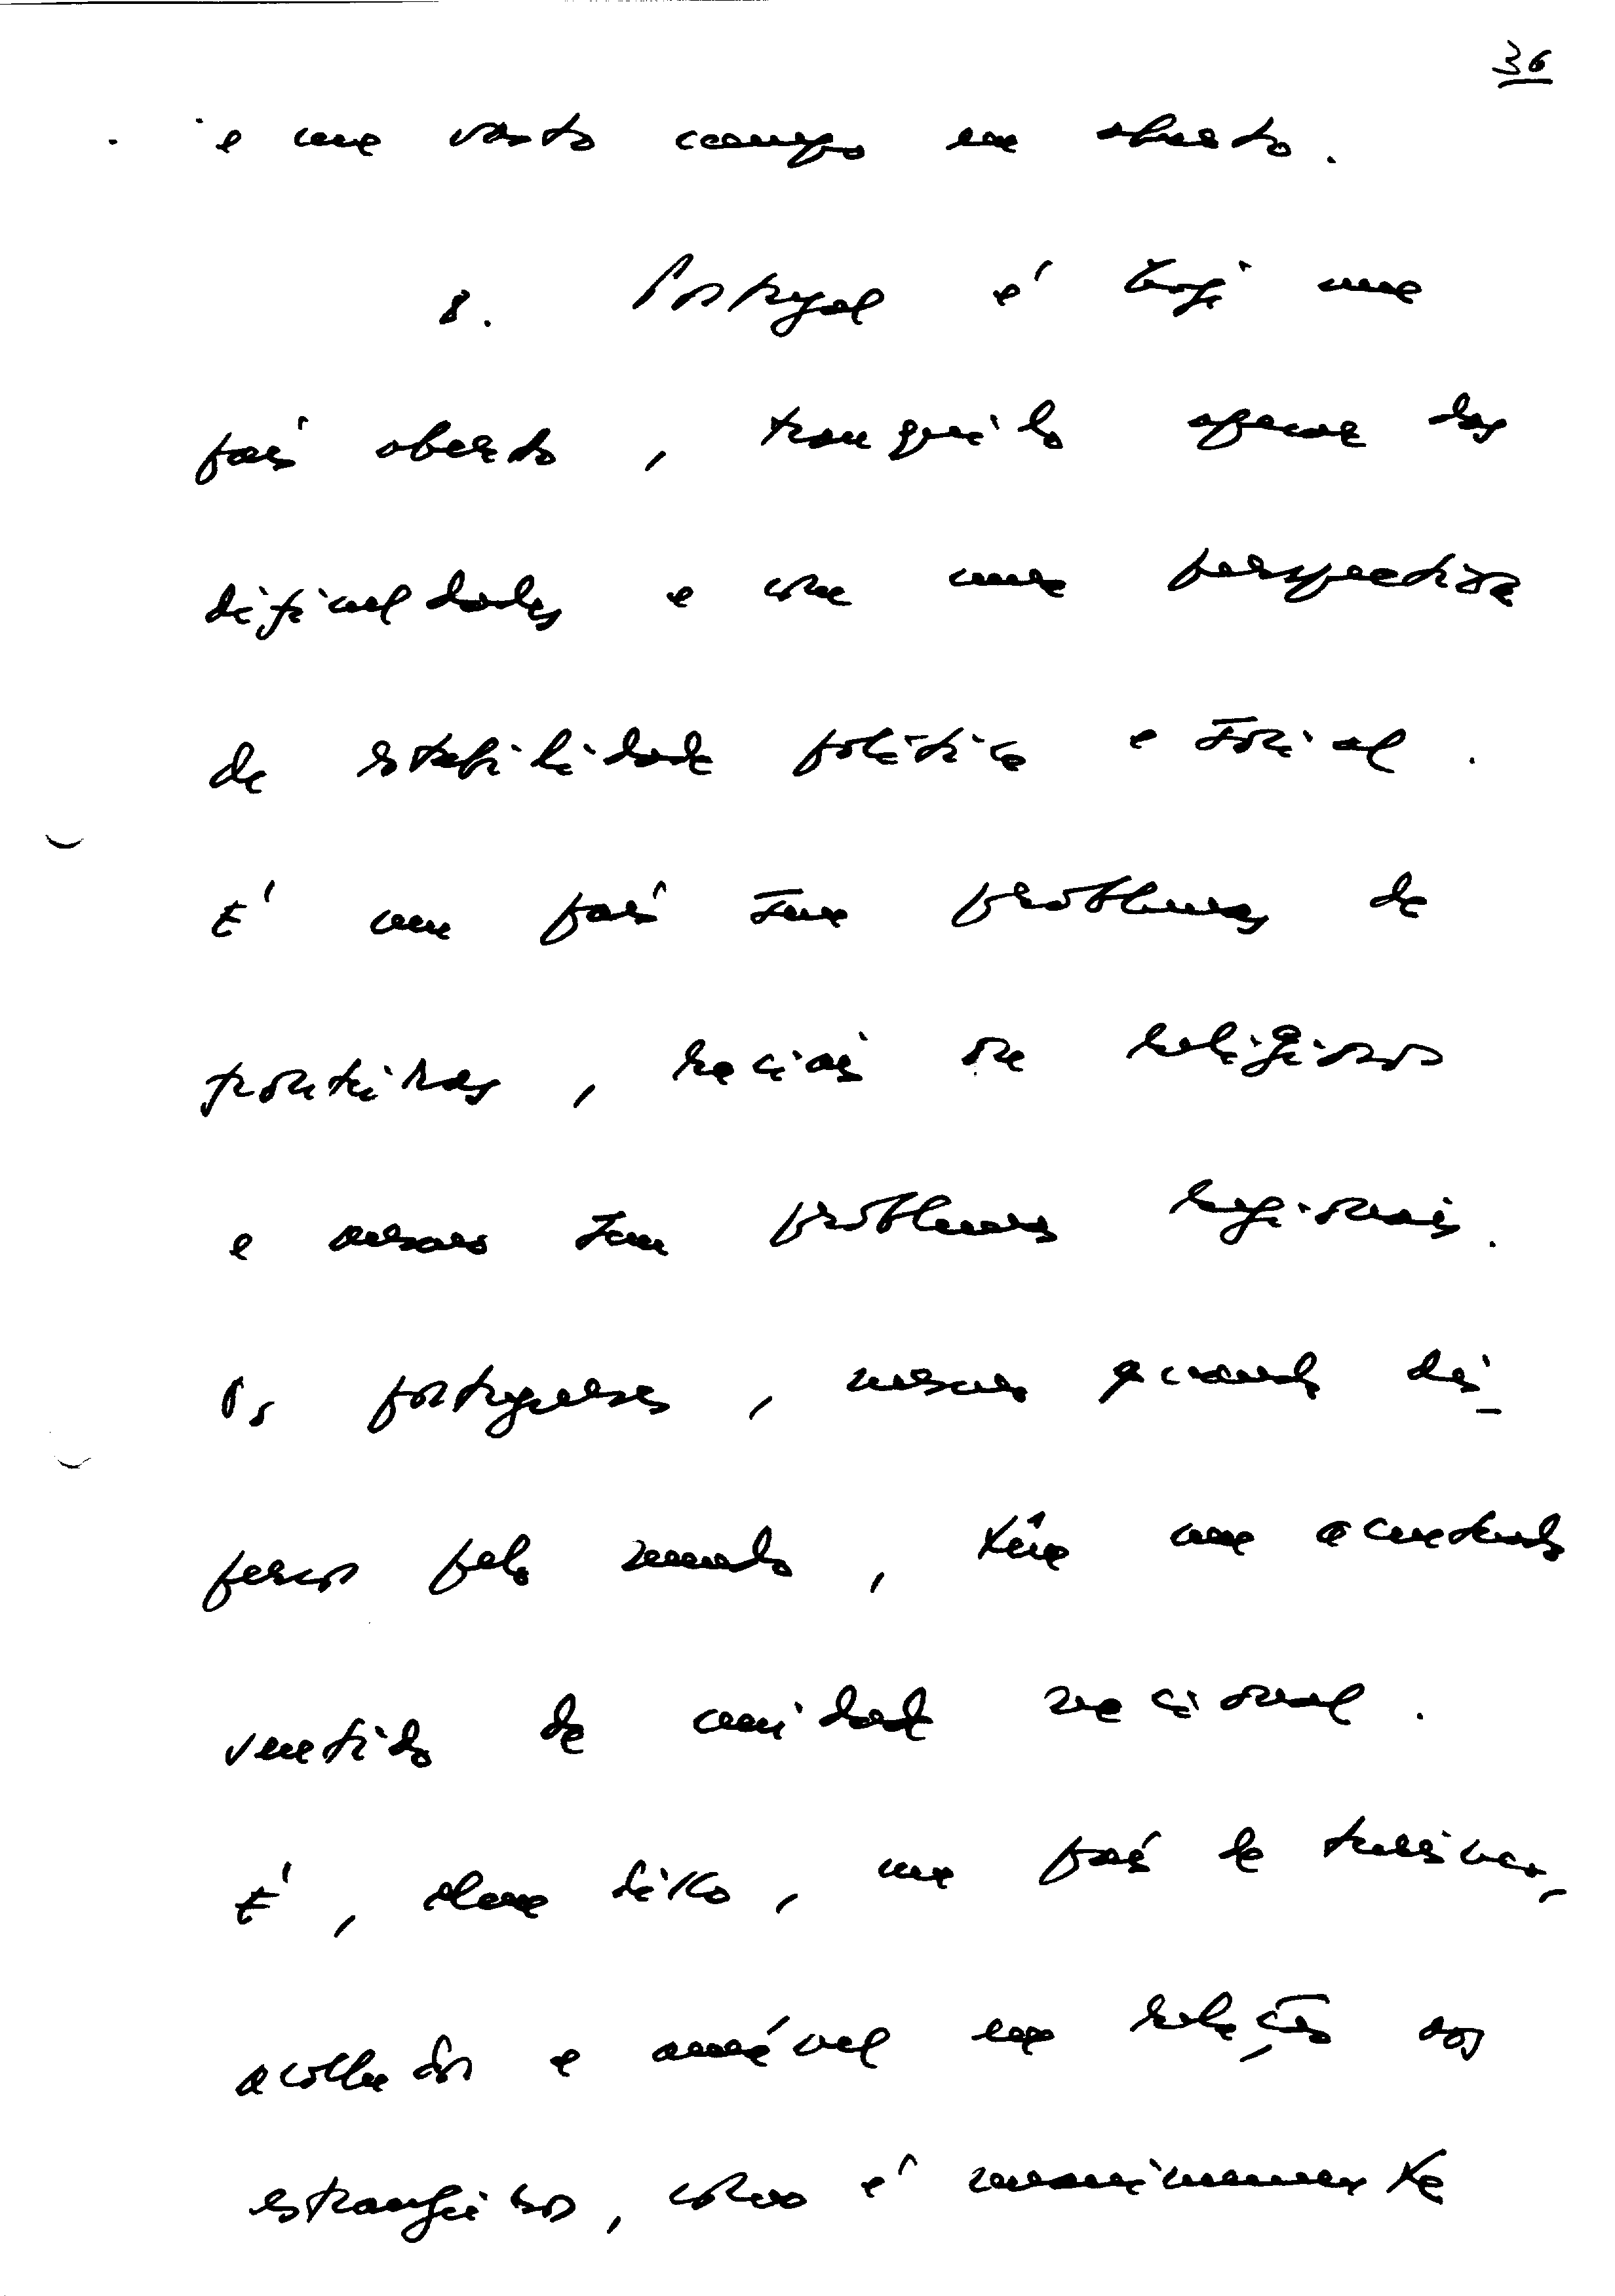 36
e um vasto campo em aberto.
8. Portugal é hoje um
país aberto, tranquilo apesar das
dificuldades e com uma perspectiva
de estabilidade política e social.
É um país sem problemas de
fronteiras, raciais ou religiosos
e mesmo sem problemas regionais.
Os portugueses, mesmo quando dis-
persos pelo mundo, têm um acentuado
sentido de unidade nacional.
É, além disso, um país de
acolhedor e amável em relação aos
estrangeiros, como é unanimemente